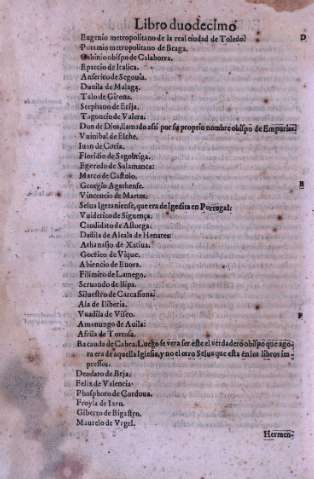 Libro duodecimo
Eugenio metropolitano de la real ciudad de Toledo. D
Potamio metropolitano de Braga.
Gabinio obispo de Calahorra.
Eparcio de Italica.
Anserico de Segouia.
Danila de Malaga.
Talo de Girona.
Stephano de Ecija.
Tagoncio de Valera.
Don de Dios, llamado assi por su proprio nombre obispo de Empurias
Vainibal de Elche.
Iuan de Coria.
Floridio de Segobriga.
Egeredo de Salamanca:
Marco de Castulo.
Georgio Agathense.
Vincencio de Martos.
Selus Igeraniense, que era de Igesira en Portugal:
Vuiderico de Siguença.
Candidato de Astorga.
Dadila de Alcala de Henares:
Athanasio de Xatiua.
Gocrico de Vique.
Abiencio de Euora.
Filimiro de Lamego.
Seruando de Bipa.
Siluestro de Carcassona:
Ala de Eliberia.
Vuadila de Viseo.
Amanungo de Auila:
Afrila de Tortosa.
Bacauda de Cabra. Luego se vera ser este el verdadero obispo que ago
ra era de aquella Iglesia, y no el otro Setius que esta en los libros im-
pressos.
Deodato de Beja.
Felix de Valencia.
Phosphoro de Cordoua.
Froyla de Iaen.
Giberio de Bigastro.
Maurelo de Vrgel.
Hermen-